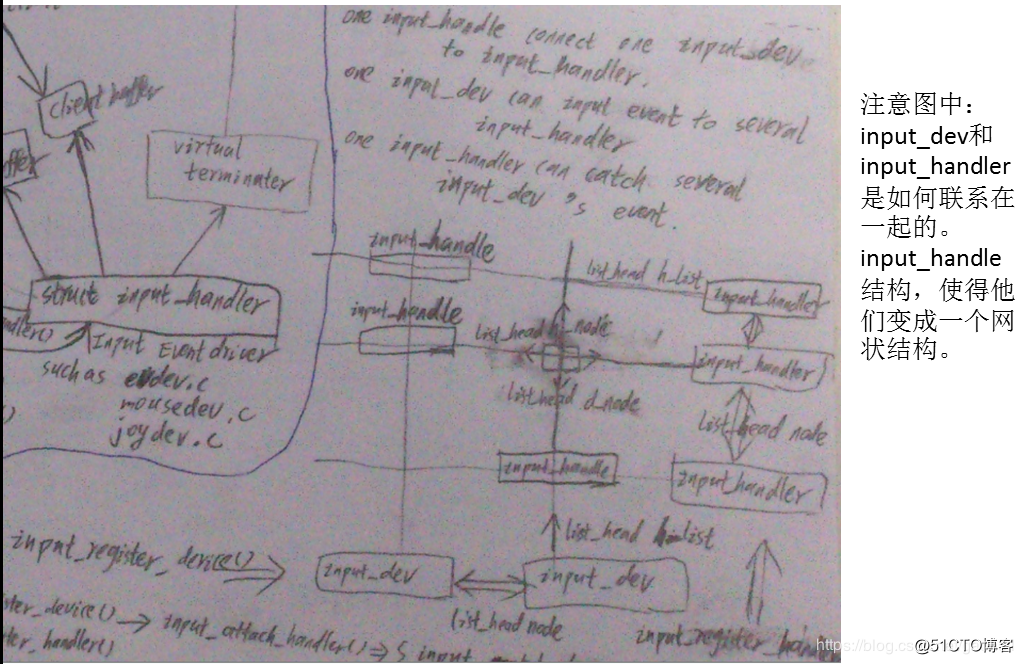 one input_handle connect one input_dev
to input_handler.
one input_dev can input event to several
input_handler
one input_handler can catch several
input_dev's event.
client buffer
virtual
terminater
struct input_handler
Input Event driver
such as evdev.c
mousedev.c
joydev.c
input_handle
list_head h_list
input_handler
input_handle
list_head h_node
input_handler
list_head d_node
list_head node
input_handle
input_handler
list_head h_list
input_register_device()
input_dev
input_dev
list_head node
input_attach_handler()
input_register_handl
注意图中：
input_dev和
input_handler
是如何联系在
一起的。
input_handle
结构，使得他
们变成一个网
状结构。
https://blog.cs
@51CTO博客